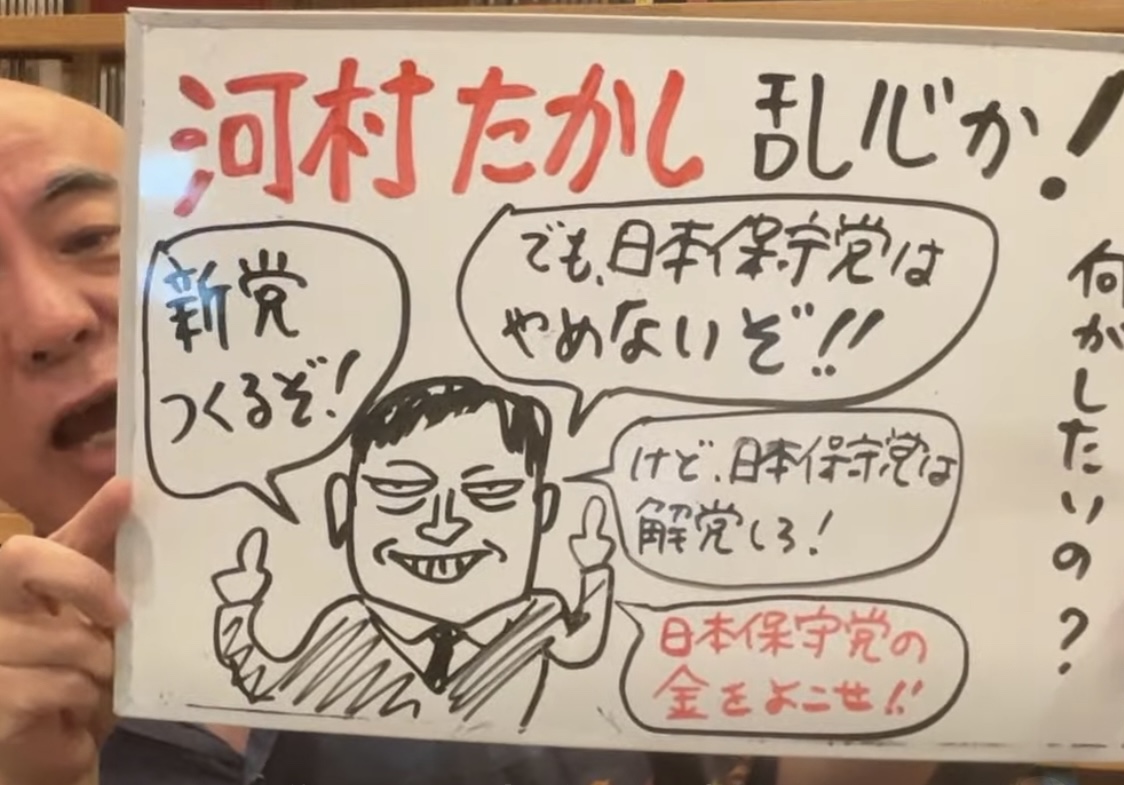 河村たかし 乱心か!
新党
つくるぞ!
でも、日本保守党は
やめないぞ!!
けど、日本保守党は
解党しろ!
日本保守党の
金をよこせ!!
何がしたいの?